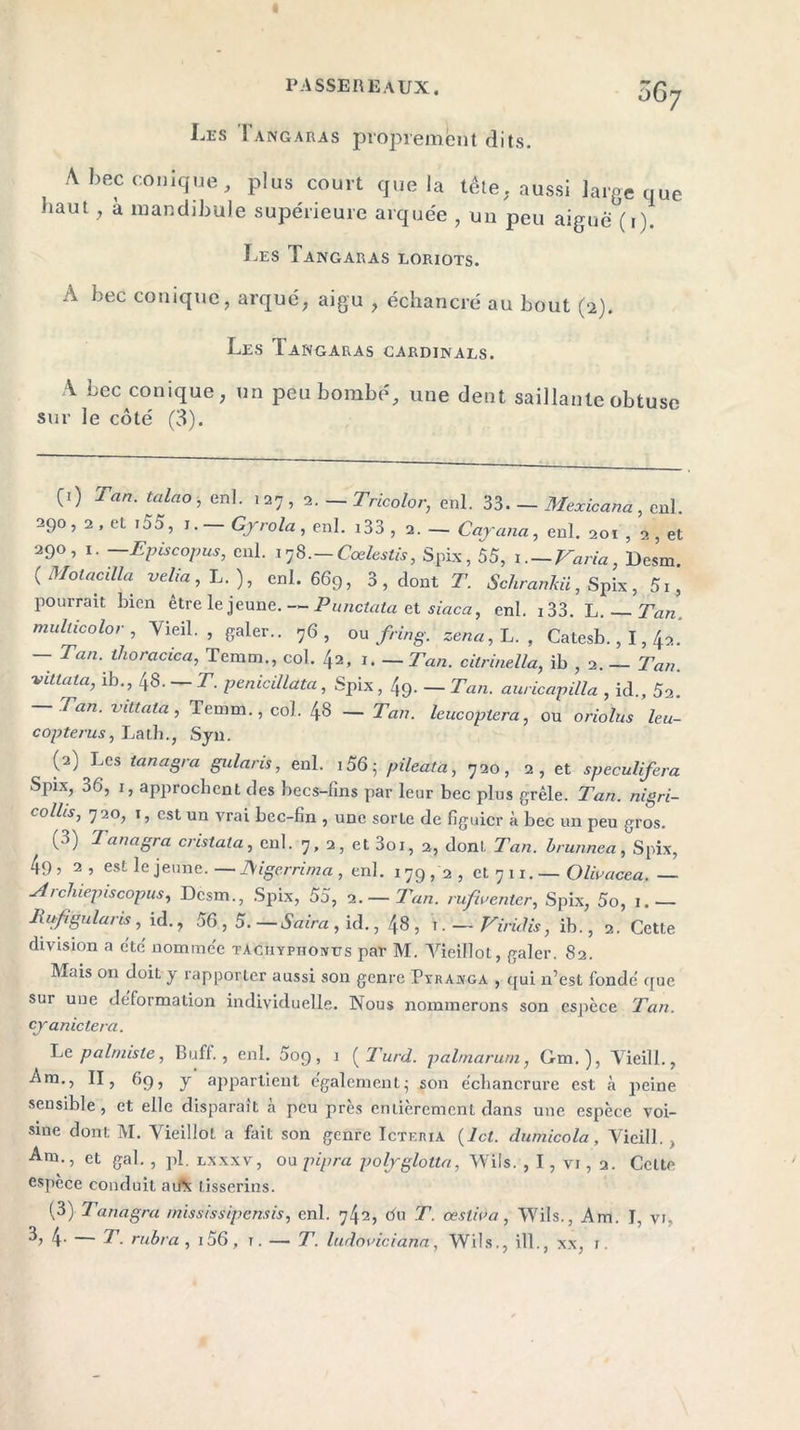 PASSEREAUX. 367
Les Tangaras proprement dits.
A bec conique, plus court que la tête, aussi large que
haut, à mandibule supérieure arquée, un peu aiguë (1).
Les Tangaras loriots.
A bec conique, arqué, aigu, échancré au bout (2).
Les Tangaras cardinals.
A bec conique, un peu bombé, une dent saillante obtuse
sur le côté (3).
(1) Tan. talao, enl. 127, 2. — Tricolor, enl. 33. — Mexicana, enl.
290, 2, et 155, 1. — Gyrola, enl. 133, 2. — Cayana, enl. 201, 2, et
290, 1. — Episcopus, enl. 178. — Cœlestis, Spix, 55, 1. — Varia, Desm.
(Motacilla velia, L.), enl. 669, 3, dont T. Schrankii, Spix, 51,
pourrait bien être le jeune. — Punctata et siaca, enl. 133. L. — Tan.
multicolor, Vieil., galer.. 76, ou fring. zena, L., Catesb., I, 42.
— Tan. thoracica, Temm., col. 42, 1. — Tan. citrinella, ib, 2. — Tan.
vittata, ib., 48. — T. penicillata, Spix, 49. — Tan. auricapilla, id., 52.
— Tan. vittata, Temm., col. 48 — Tan. leucoptera, ou oriolus leu-
copterus, Lath., Syn.
(2) Les tanagra gularis, enl. 156; pileata, 720, 2, et speculifera
Spix, 36, 1, approchent des becs-fins par leur bec plus grêle. Tan. nigri-
collis, 720, 1, est un vrai bec-fin, une sorte de figuier à bec un peu gros.
(3) Tanagra cristata, enl. 7, 2, et 301, 2, dont Tan. brunnea, Spix,
49, 2, est le jeune. — Nigerrima, enl. 179, 2, et 711. — Olivacea. —
Archiepiscopus, Desm., Spix, 55, 2. — Tan. rufiventer, Spix, 50, 1. —
Rufigularis, id., 56, 5. — Saira, id., 48, 1. — Viridis, ib., 2. Cette
division a été nommée tachyphonus par M. Vieillot, galer. 82.
Mais on doit y rapporter aussi son genre Pyranga, qui n'est fondé que
sur une déformation individuelle. Nous nommerons son espèce Tan.
cyanictera.
Le palmiste, Buff., enl. 509, 1 (Turd. palmarum, Gm.), Vieill.,
Am., II, 69, y appartient également; son échancrure est à peine
sensible, et elle disparaît à peu près entièrement dans une espèce voi-
sine dont M. Vieillot a fait son genre Icteria (Ict. dumicola, Vieill.,
Am., et gal., pl. lxxxv, ou pipra polyglotta, Wils., I, vi, 2. Cette
espèce conduit aux tisserins.
(3) Tanagra mississipensis, enl. 742, ou T. œstiva, Wils., Am. I, vi,
3, 4. — T. rubra, 156, 1. — T. ludoviciana, Wils., ill., xx, 1.